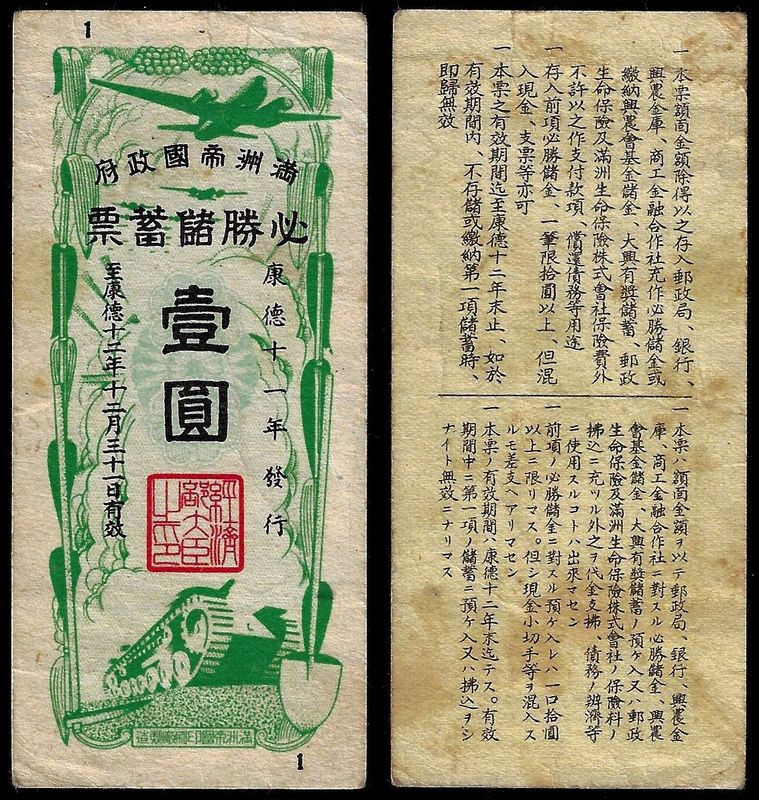 1
滿洲帝國政府
必勝儲蓄票
康德十一年發行
壹圓
至康德十二年十二月三十一日有效
經濟部大臣之印
滿洲帝國印刷廠製造
1
一 本票額面金額除得以之存入郵政局、銀行、
興農金庫、商工金融合作社充作必勝儲金或
繳納興農會基金儲金、大興有獎儲蓄、郵政
生命保險及滿洲生命保險株式會社保險費外
不許以之作支付款項、償還債務等用途
一 存入前項必勝儲金、一筆限拾圓以上、但混
入現金、支票等亦可
一 本票之有效期間迄至康德十二年末止、如於
有效期間內、不存儲或繳納第一項儲蓄時、
即歸無效
一 本票ハ額面金額ヲ以テ郵政局、銀行、興農金
庫、商工金融合作社ニ對スル必勝儲金、興農
會基金儲金、大興有獎儲蓄ノ預ケ入又ハ郵政
生命保險及滿洲生命保險株式會社ノ保險料ノ
拂込ニ充ツル外之ヲ代金支拂、債務ノ辨濟等
ニ使用スルコトハ出來マセン
一 前項ノ必勝儲金ニ對スル預ケ入レハ一口拾圓
以上ニ限リマス。但シ現金小切手等ヲ混入ス
ルモ差支ヘアリマセン
一 本票ノ有效期間ハ康德十二年末迄デス。有效
期間中ニ第一項ノ儲蓄ニ預ケ入又ハ拂込ヲシ
ナイト無效ニナリマス